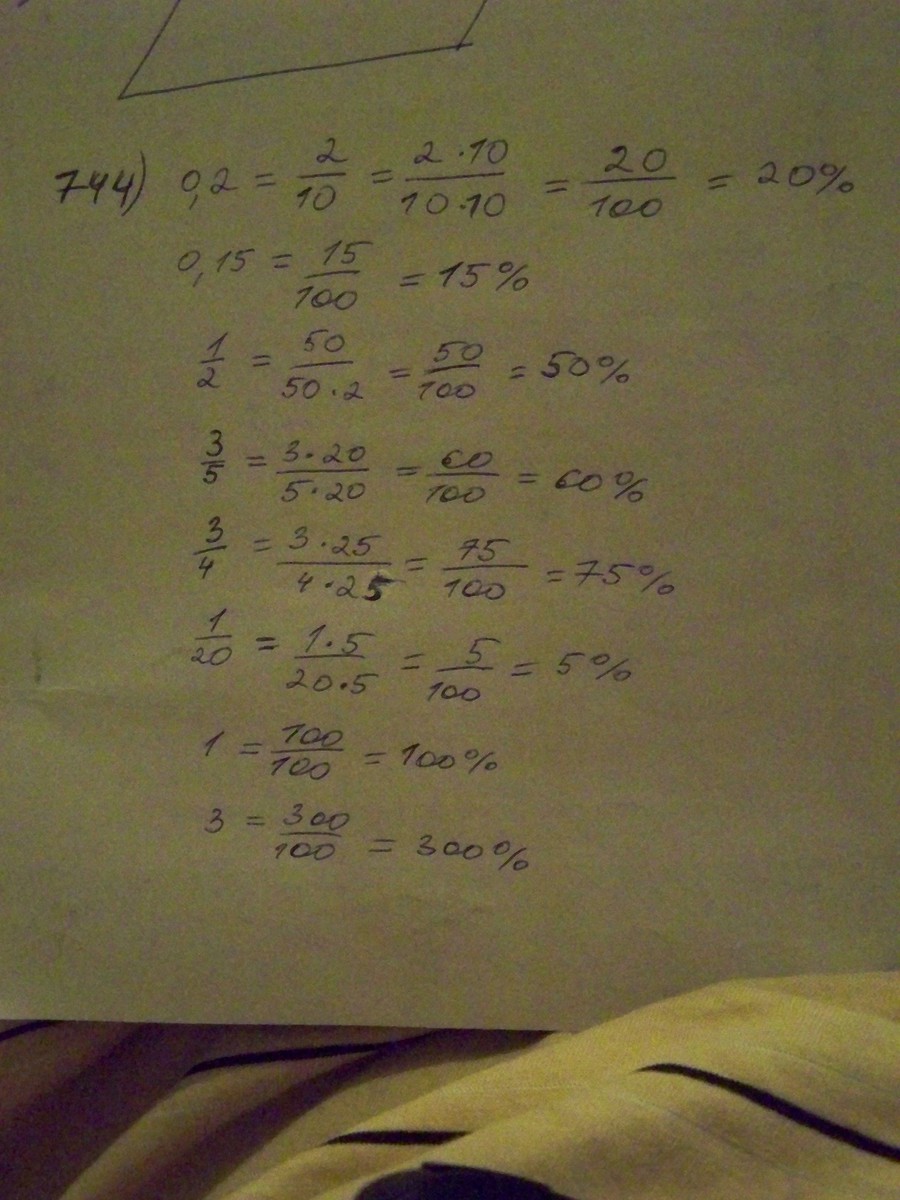 744) 0,2 = 2/10 = 2·10/10·10 = 20/100 = 20%
0,15 = 15/100 = 15%
1/2 = 50/50·2 = 50/100 = 50%
3/5 = 3·20/5·20 = 60/100 = 60%
3/4 = 3·25/4·25 = 75/100 = 75%
1/20 = 1·5/20·5 = 5/100 = 5%
1 = 100/100 = 100%
3 = 300/100 = 300%